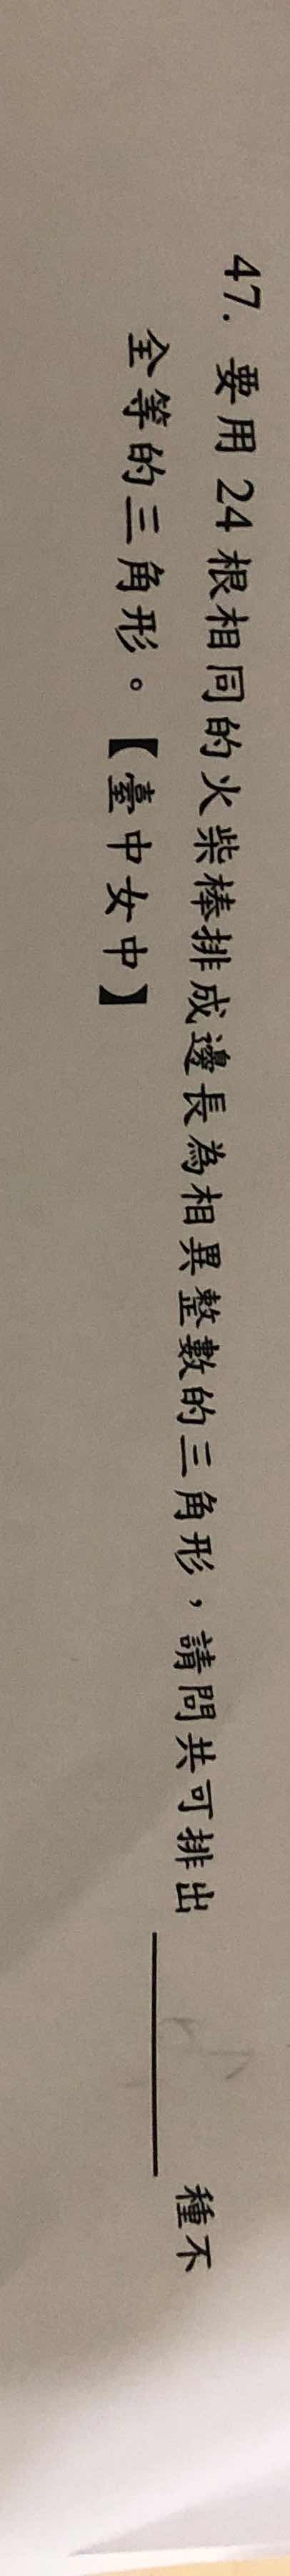 47. 要用 24 根相同的火柴棒排成邊長為相異整數的三角形，請問共可排出＿＿＿＿種不
全等的三角形。【臺中女中】